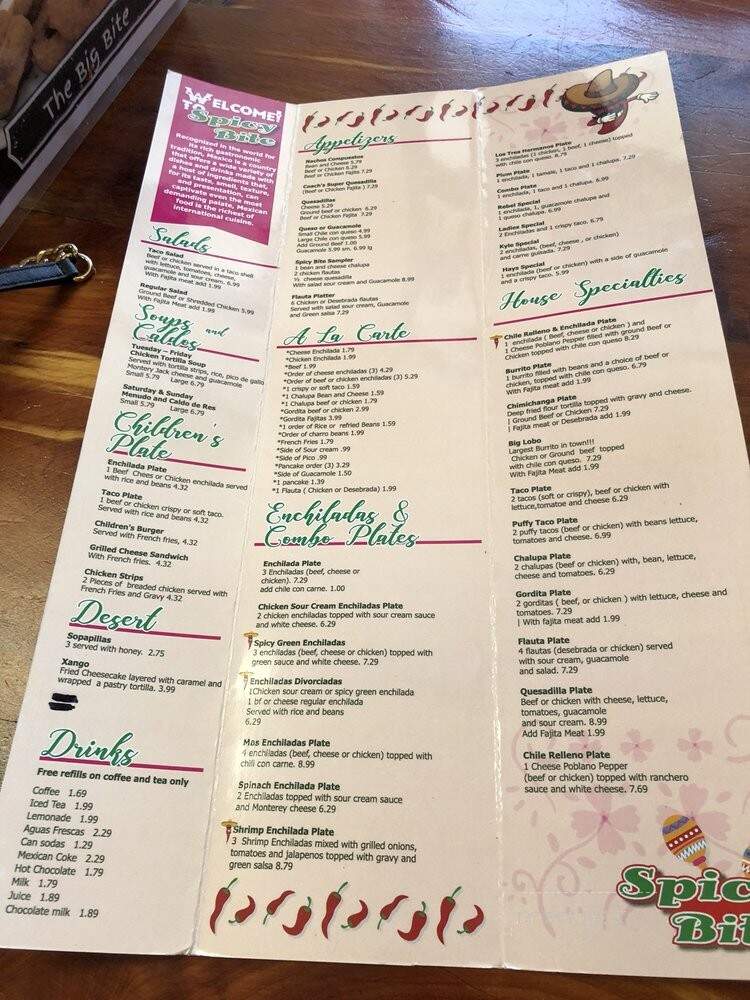 The Big Bite
WELCOME!
TO
Spicy
Bite
Recognized in the world for
its rich gastronomic
tradition, Mexico is a country
that offers a wide variety of
dishes and drinks made with
a host of ingredients that,
for its taste, smell, texture,
and presentation, can
captivate even the most
demanding palate, Mexican
food is the richest of
international cuisine.
Salads
Taco Salad
Beef or chicken served in a taco shell
with lettuce, tomatoes, cheese,
guacamole and sour cream. 6.99
With Fajita meat add 1.99
Regular Salad
Ground Beef or Shredded Chicken 5.99
With Fajita Meat add 1.99
Soups and
Caldos
Tuesday – Friday
Chicken Tortilla Soup
Served with tortilla strips, rice, pico de gallo
Montery Jack cheese and guacamole
Small 5.79 Large 6.79
Saturday & Sunday
Menudo and Caldo de Res
Small 5.79 Large 6.79
Children's
Plate
Enchilada Plate
1 Beef Chees or Chicken enchilada served
with rice and beans 4.32
Taco Plate
1 beef or chicken crispy or soft taco.
Served with rice and beans 4.32
Children's Burger
Served with French fries, 4.32
Grilled Cheese Sandwich
With French fries. 4.32
Chicken Strips
2 Pieces of breaded chicken served with
French Fries and Gravy 4.32
Desert
Sopapillas
3 served with honey. 2.75
Xango
Fried Cheesecake layered with caramel and
wrapped a pastry tortilla. 3.99
Drinks
Free refills on coffee and tea only
Coffee 1.69
Iced Tea 1.99
Lemonade 1.99
Aguas Frescas 2.29
Can sodas 1.29
Mexican Coke 2.29
Hot Chocolate 1.79
Milk 1.79
Juice 1.89
Chocolate milk 1.89
Appetizers
Nachos Compuestos
Bean and Cheese 5.79
Beef or Chicken 6.29
Beef or Chicken Fajita 7.29
Coach's Super Quesadilla
(Beef or Chicken Fajita ) 7.29
Quesadillas
Cheese 5.29
Ground beef or chicken 6.29
Beef or Chicken Fajita 7.29
Queso or Guacamole
Small Chile con queso 4.99
Large Chile con queso 5.99
Add Ground Beef 1.00
Guacamole 5.99 sm, 6.99 lg
Spicy Bite Sampler
1 bean and cheese chalupa
2 chicken flautas
½ cheese quesadilla
With salad sour cream and Guacamole 8.99
Flauta Platter
6 Chicken or Desebrada flautas
Served with salad sour cream, Guacamole
and Green salsa 7.29
A La Carte
*Cheese Enchilada 1.79
*Chicken Enchilada 1.99
*Beef 1.99
*Order of cheese enchiladas (3) 4.29
*Order of beef or chicken enchiladas (3) 5.29
*1 crispy or soft taco 1.59
*1 Chalupa Bean and Cheese 1.59
*1 Chalupa beef or chicken 1.79
*Gordita beef or chicken 2.99
*Gordita Fajitas 3.99
*1 order of Rice or refried Beans 1.59
*Order of charro beans 1.99
*French Fries 1.79
*Side of Sour cream .99
*Side of Pico .99
*Pancake order (3) 3.29
*Side of Guacamole 1.50
*1 pancake 1.39
*1 Flauta ( Chicken or Desebrada) 1.99
Enchiladas &
Combo Plates
Enchilada Plate
3 Enchiladas (beef, cheese or
chicken). 7.29
add chile con carne. 1.00
Chicken Sour Cream Enchiladas Plate
2 chicken enchiladas topped with sour cream sauce
and white cheese. 6.29
Spicy Green Enchiladas
3 enchiladas (beef, cheese or chicken) topped with
green sauce and white cheese. 7.29
Enchiladas Divorciadas
1Chicken sour cream or spicy green enchilada
1 bf or cheese regular enchilada
Served with rice and beans
6.29
Mas Enchiladas Plate
4 enchiladas (beef, cheese or chicken) topped with
chili con carne. 8.99
Spinach Enchilada Plate
2 Enchiladas topped with sour cream sauce
and Monterey cheese 6.29
Shrimp Enchilada Plate
3 Shrimp Enchiladas mixed with grilled onions,
tomatoes and jalapenos topped with gravy and
green salsa 8.79
Los Tres Hermanos Plate
3 enchiladas (1 chicken, 1 beef, 1 cheese) topped
with chile con queso. 8.79
Plum Plate
1 enchilada, 1 tamale, 1 taco and 1 chalupa. 7.29
Combo Plate
1 enchilada, 1 taco and 1 chalupa. 6.99
Rebel Special
1 enchilada, 1, guacamole chalupa and
1 queso chalupa. 6.99
Ladies Special
2 Enchiladas and 1 crispy taco. 6.79
Kyle Special
2 enchiladas, (beef, cheese , or chicken)
and carne guisada. 7.29
Hays Special
1 enchilada (beef or chicken) with a side of guacamole
and a crispy taco. 5.99
House Specialties
Chile Relleno & Enchilada Plate
1 enchilada ( Beef, cheese or chicken ) and
1 Cheese Poblano Pepper filled with ground Beef or
Chicken topped with chile con queso 8.29
Burrito Plate
1 burrito filled with beans and a choice of beef or
chicken, topped with chile con queso. 6.79
With Fajita meat add 1.99
Chimichanga Plate
Deep fried flour tortilla topped with gravy and cheese.
| Ground Beef or Chicken 7.29
| Fajita meat or Desebrada add 1.99
Big Lobo
Largest Burrito in town!!!
Chicken or Ground beef topped
with chile con queso. 7.29
With Fajita Meat add 1.99
Taco Plate
2 tacos (soft or crispy), beef or chicken with
lettuce,tomatoe and cheese 6.29
Puffy Taco Plate
2 puffy tacos (beef or chicken) with beans lettuce,
tomatoes and cheese. 6.99
Chalupa Plate
2 chalupas (beef or chicken) with, bean, lettuce,
cheese and tomatoes. 6.29
Gordita Plate
2 gorditas ( beef, or chicken ) with lettuce, cheese and
tomatoes. 7.29
| With fajita meat add 1.99
Flauta Plate
4 flautas (desebrada or chicken) served
with sour cream, guacamole
and salad. 7.29
Quesadilla Plate
Beef or chicken with cheese, lettuce,
tomatoes, guacamole
and sour cream. 8.99
Add Fajita Meat 1.99
Chile Relleno Plate
1 Cheese Poblano Pepper
(beef or chicken) topped with ranchero
sauce and white cheese. 7.69
Spic
Bit